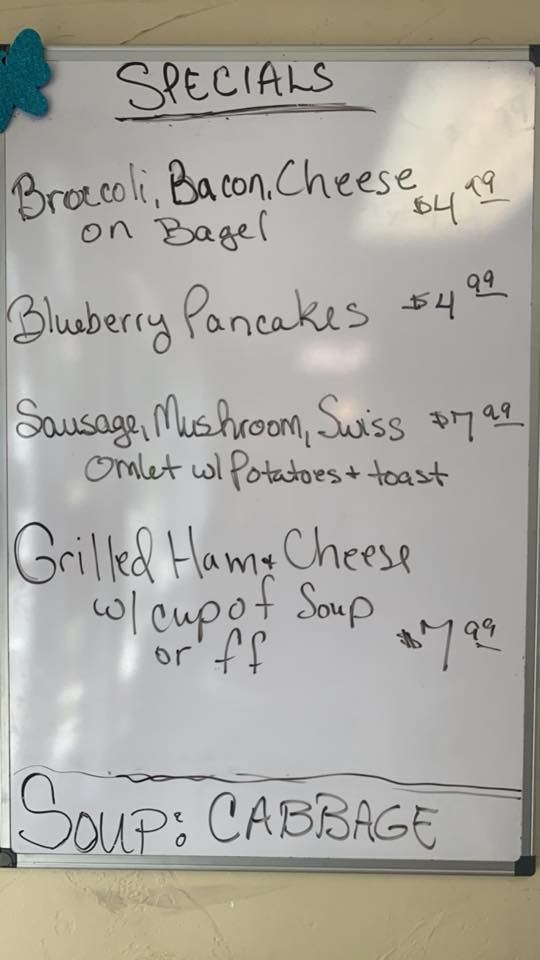 SPECIALS
Broccoli, Bacon, Cheese $4.99
on Bagel
Blueberry Pancakes $4.99
Sausage, Mushroom, Swiss $7.99
Omlet w/ Potatoes + toast
Grilled Ham + Cheese
w/ cup of Soup
or ff $7.99
Soup: CABBAGE